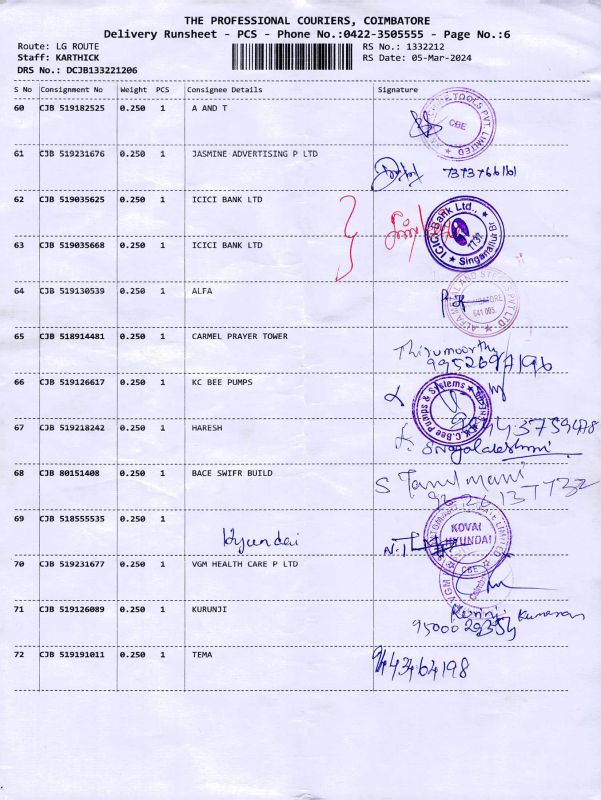 THE PROFESSIONAL COURIERS, COIMBATORE
Delivery Runsheet - PCS - Phone No.:0422-3505555 - Page No.:6
Route: LG ROUTE RS No.: 1332212
Staff: KARTHICK RS Date: 05-Mar-2024
DRS No.: DCJB133221206
S No Consignment No Weight PCS Consignee Details Signature
60 CJB 519182525 0.250 1 A AND T
TOOLS PVT. LIMITED
CBE
61 CJB 519231676 0.250 1 JASMINE ADVERTISING P LTD
62 CJB 519035625 0.250 1 ICICI BANK LTD
ICICI Bank Ltd.,
7732
63 CJB 519035668 0.250 1 ICICI BANK LTD
64 CJB 519130539 0.250 1 ALFA
641 005
65 CJB 518914481 0.250 1 CARMEL PRAYER TOWER
Thirumoorthy
66 CJB 519126617 0.250 1 KC BEE PUMPS
K.C.Bee Pumps & Systems
67 CJB 519218242 0.250 1 HARESH
68 CJB 80151408 0.250 1 BACE SWIFR BUILD
S Tamilmani
69 CJB 518555535 0.250 1
Hyundai
KOVAI
HYUNDAI
CBE
70 CJB 519231677 0.250 1 VGM HEALTH CARE P LTD
71 CJB 519126089 0.250 1 KURUNJI
9500029354
72 CJB 519191011 0.250 1 TEMA
9443464198